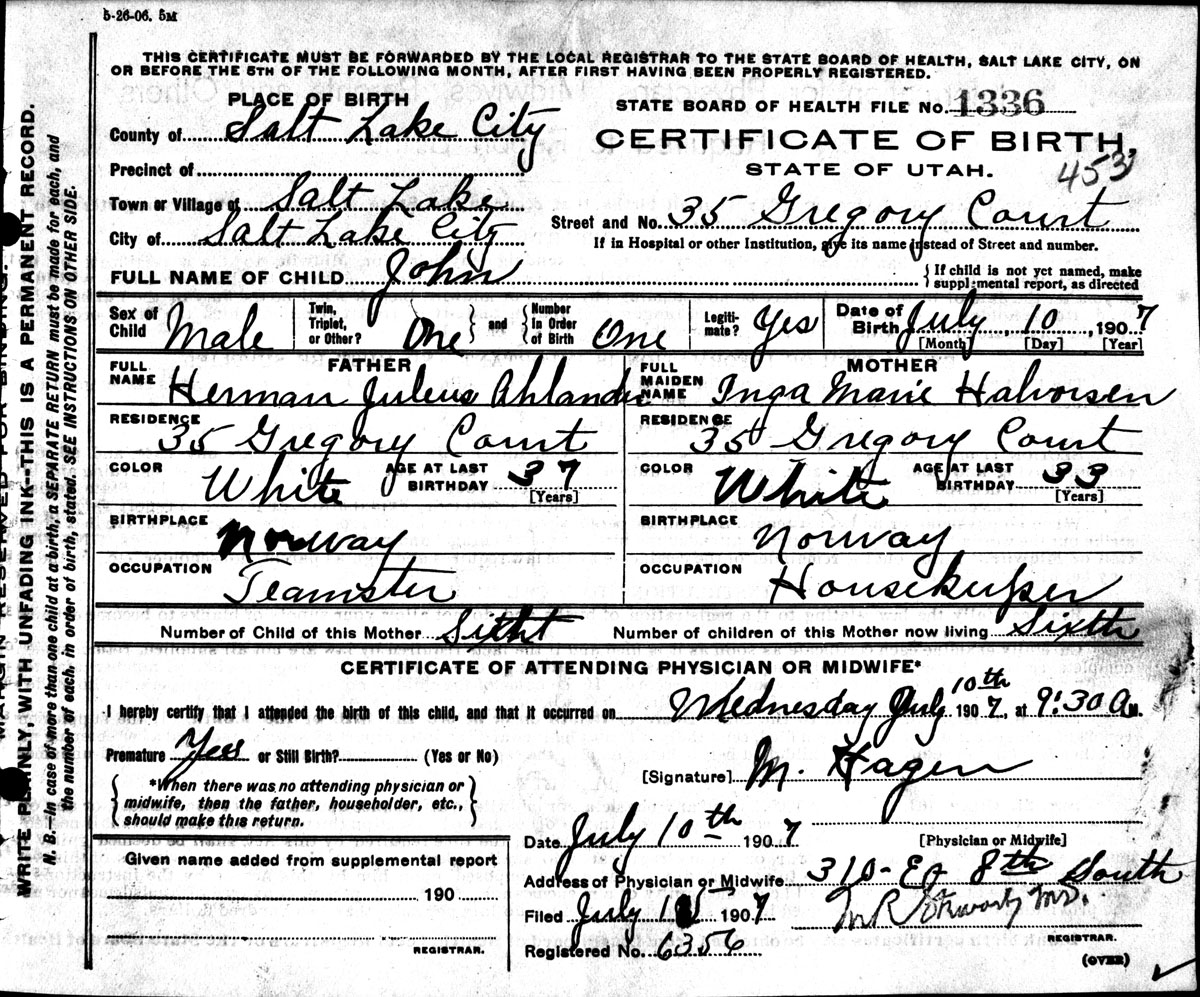 5-26-06. 5M
THIS CERTIFICATE MUST BE FORWARDED BY THE LOCAL REGISTRAR TO THE STATE BOARD OF HEALTH, SALT LAKE CITY, ON
OR BEFORE THE 5TH OF THE FOLLOWING MONTH, AFTER FIRST HAVING BEEN PROPERLY REGISTERED.
PLACE OF BIRTH
County of Salt Lake City
Precinct of
Town or Village of Salt Lake
City of Salt Lake City
STATE BOARD OF HEALTH FILE No. 1336
CERTIFICATE OF BIRTH,
STATE OF UTAH.
453
Street and No. 35 Gregory Court
If in Hospital or other Institution, give its name instead of Street and number.
FULL NAME OF CHILD John
{If child is not yet named, make
supplemental report, as directed
Sex of Child Male
Twin, Triplet, or Other? One } and { Number In Order of Birth One
Legiti-mate? Yes
Date of Birth July, 10, 1907
[Month] [Day] [Year]
FATHER
FULL NAME Herman Juleus Ahlander
RESIDENCE
35 Gregory Court
COLOR White AGE AT LAST BIRTHDAY 37
[Years]
BIRTHPLACE
Norway
OCCUPATION
Teamster
MOTHER
FULL MAIDEN NAME Inga Marie Halvorsen
RESIDENCE
35 Gregory Court
COLOR White AGE AT LAST BIRTHDAY 33
[Years]
BIRTHPLACE
Norway
OCCUPATION
Housekeeper
Number of Child of this Mother Sitht Number of children of this Mother now living Sixth
CERTIFICATE OF ATTENDING PHYSICIAN OR MIDWIFE*
I hereby certify that I attended the birth of this child, and that it occurred on Wednesday July 10th 1907, at 9:30 A M.
Premature Yes or Still Birth? (Yes or No)
{*When there was no attending physician or
midwife, then the father, householder, etc.,
should make this return.}
[Signature] M. Hagen
Date July 10th 1907
[Physician or Midwife]
Given name added from supplemental report
190
REGISTRAR.
Address of Physician or Midwife 310-E 8th South
Filed July 1907
REGISTRAR.
Registered No. 6356
(OVER)
WRITE PLAINLY, WITH UNFADING INK—THIS IS A PERMANENT RECORD.
N. B.—In case of more than one child at a birth, a SEPARATE RETURN must be made for each, and
the number of each, in order of birth, stated. SEE INSTRUCTIONS ON OTHER SIDE.